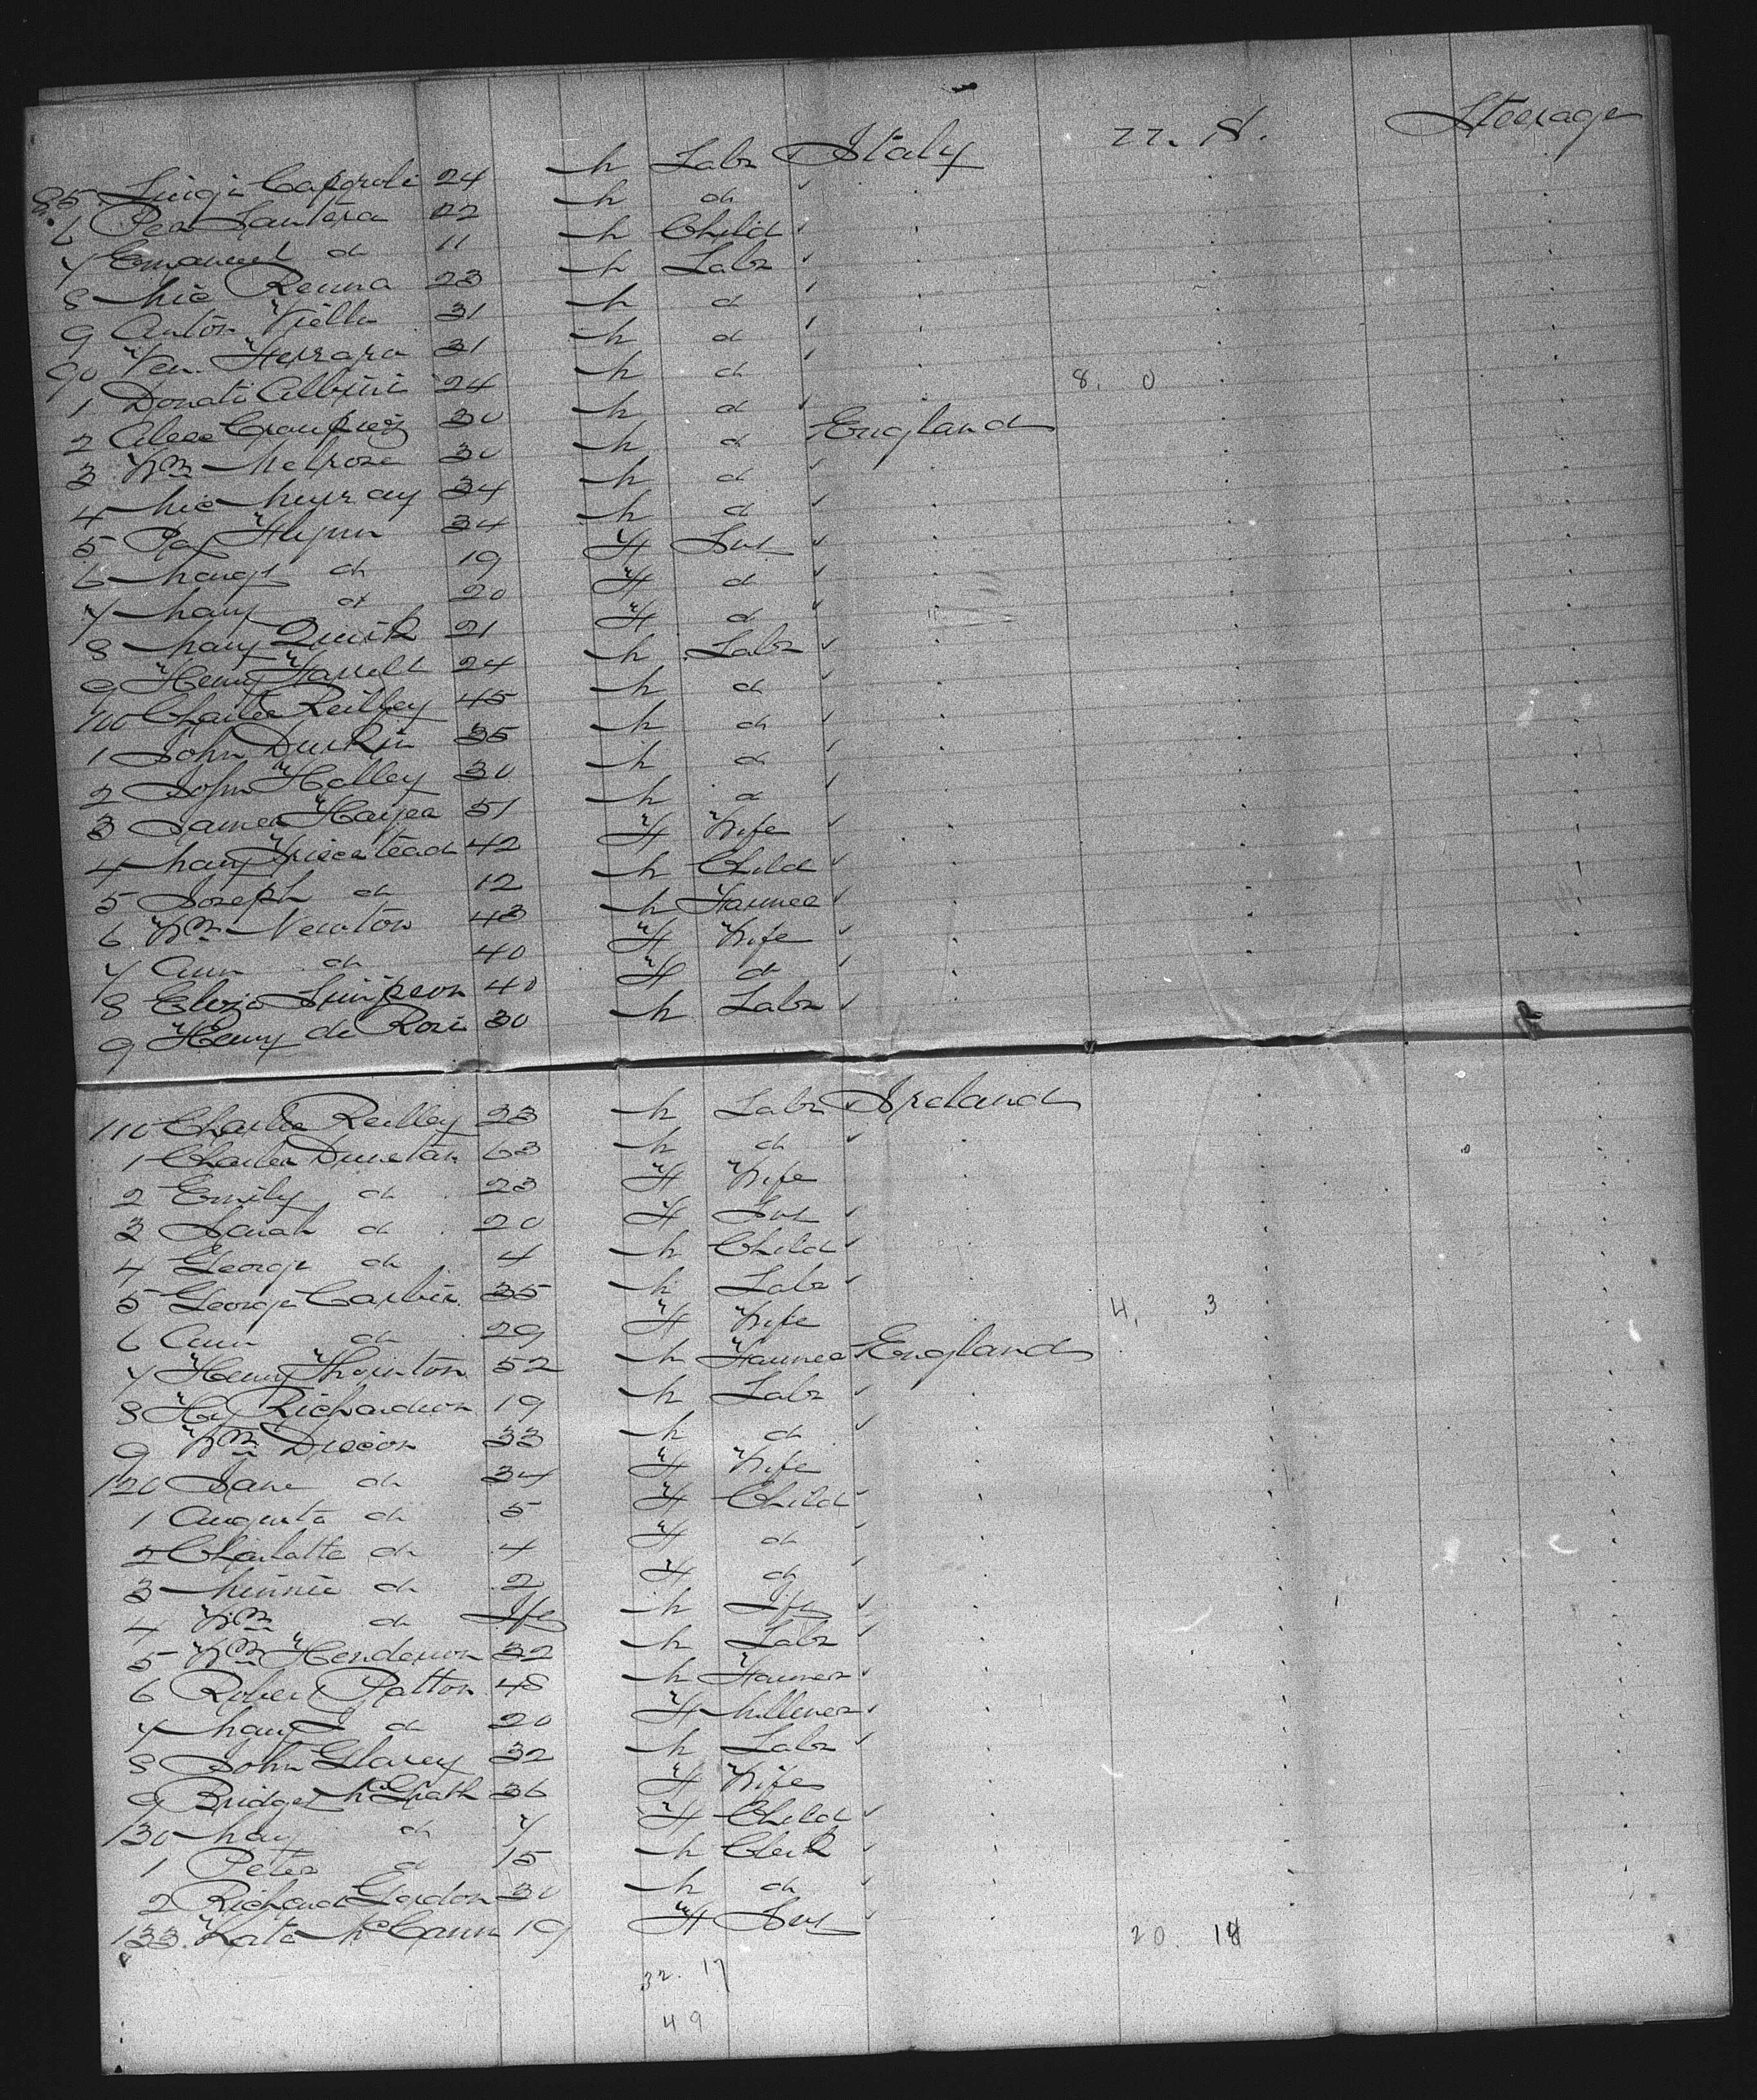 85 Luigi Caporoli 24 M Labr Italy U. S. Steerage
6 Pea Santera 22 M do "
7 Emanuel do 11 M Child "
8 Mic Renna 23 M Labr "
9 Anton Viella 31 M do "
90 Ven. Ferrara 31 M do "
1 Donato Albini 24 M do " 8. 0
2 Alexr 30 M do England
3 Wm Melrose 30 M do "
4 Mic Murray 34 M do "
5 Pat Flynn 34 M do "
6 Margt do 19 F Svt "
7 Mary do 20 F do "
8 Mary Quirk 21 F do "
9 Henry Farrell 24 M Labr "
100 Charles Reilley 45 M do "
1 John Durkin 35 M do "
2 John Holley 30 M do "
3 James Hayes 51 M do "
4 Mary 42 F Wife "
5 Joseph do 12 M Child "
6 Wm Newton 43 M Farmer "
7 Ann do 40 F Wife "
8 Eliza Simpson 40 F do "
9 Henry de Rosi 30 M Labr "
110 Charles Reilley 23 M Labr Ireland
1 Charles Dunstan 63 M do "
2 Emily do 23 F Wife
3 Sarah do 20 F Svt "
4 George do 4 M Child "
5 George Corbin 35 M Labr "
6 Ann do 29 F Wife 4. 3
7 Henry Thornton 52 M Farmer England
8 Hy Richardson 19 M Labr "
9 Wm Dixon 33 M do "
120 Jane do 34 F Wife
1 Augusta do 5 F Child "
2 Charlotte do 4 F do "
3 Minnie do 2 F do "
4 Wm do Inf M Inf "
5 Wm Henderson 32 M Labr "
6 Robert Patton 48 M Farmer "
7 Mary J do 20 F Milliner "
8 John Glavey 32 M Labr "
9 Bridget McGrath 36 F Wife
130 Mary do 7 F Child "
1 Peter do 15 M Clerk "
2 Richard Gordon 30 M do "
133. Kate McCann 19 F Svt " 20. 14
32. 17
49